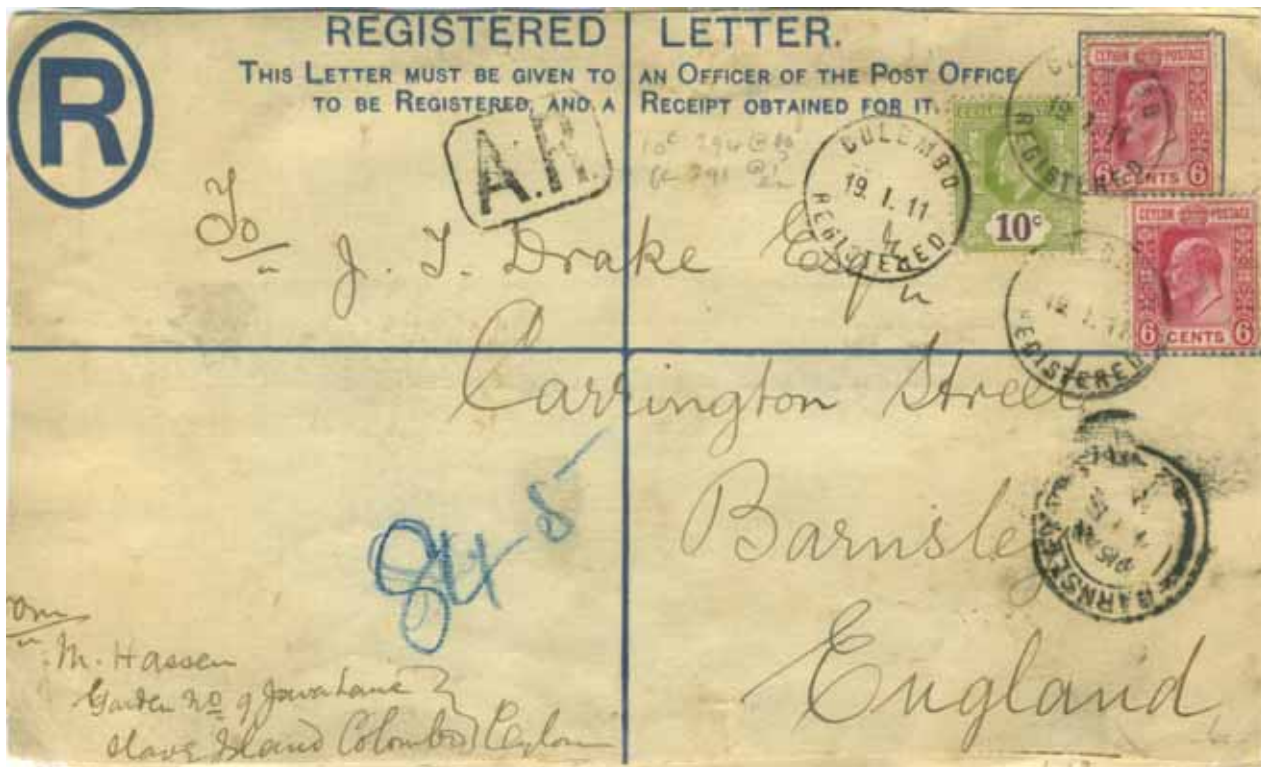 R
REGISTERED LETTER.
THIS LETTER MUST BE GIVEN TO AN OFFICER OF THE POST OFFICE
TO BE REGISTERED, AND A RECEIPT OBTAINED FOR IT.
A.R.
CEYLON POSTAGE
6 CENTS 6
10c
COLOMBO
19. 1. 11
REGISTERED
CEYLON POSTAGE
6 CENTS 6
REGISTERED
REGISTERED
To
J. T. Drake Esqr
Carrington Street
Barnsley
England
BARNSLEY
84-5
M. Hassen
Garden No 9 Java Lane
Slave Island Colombo Ceylon